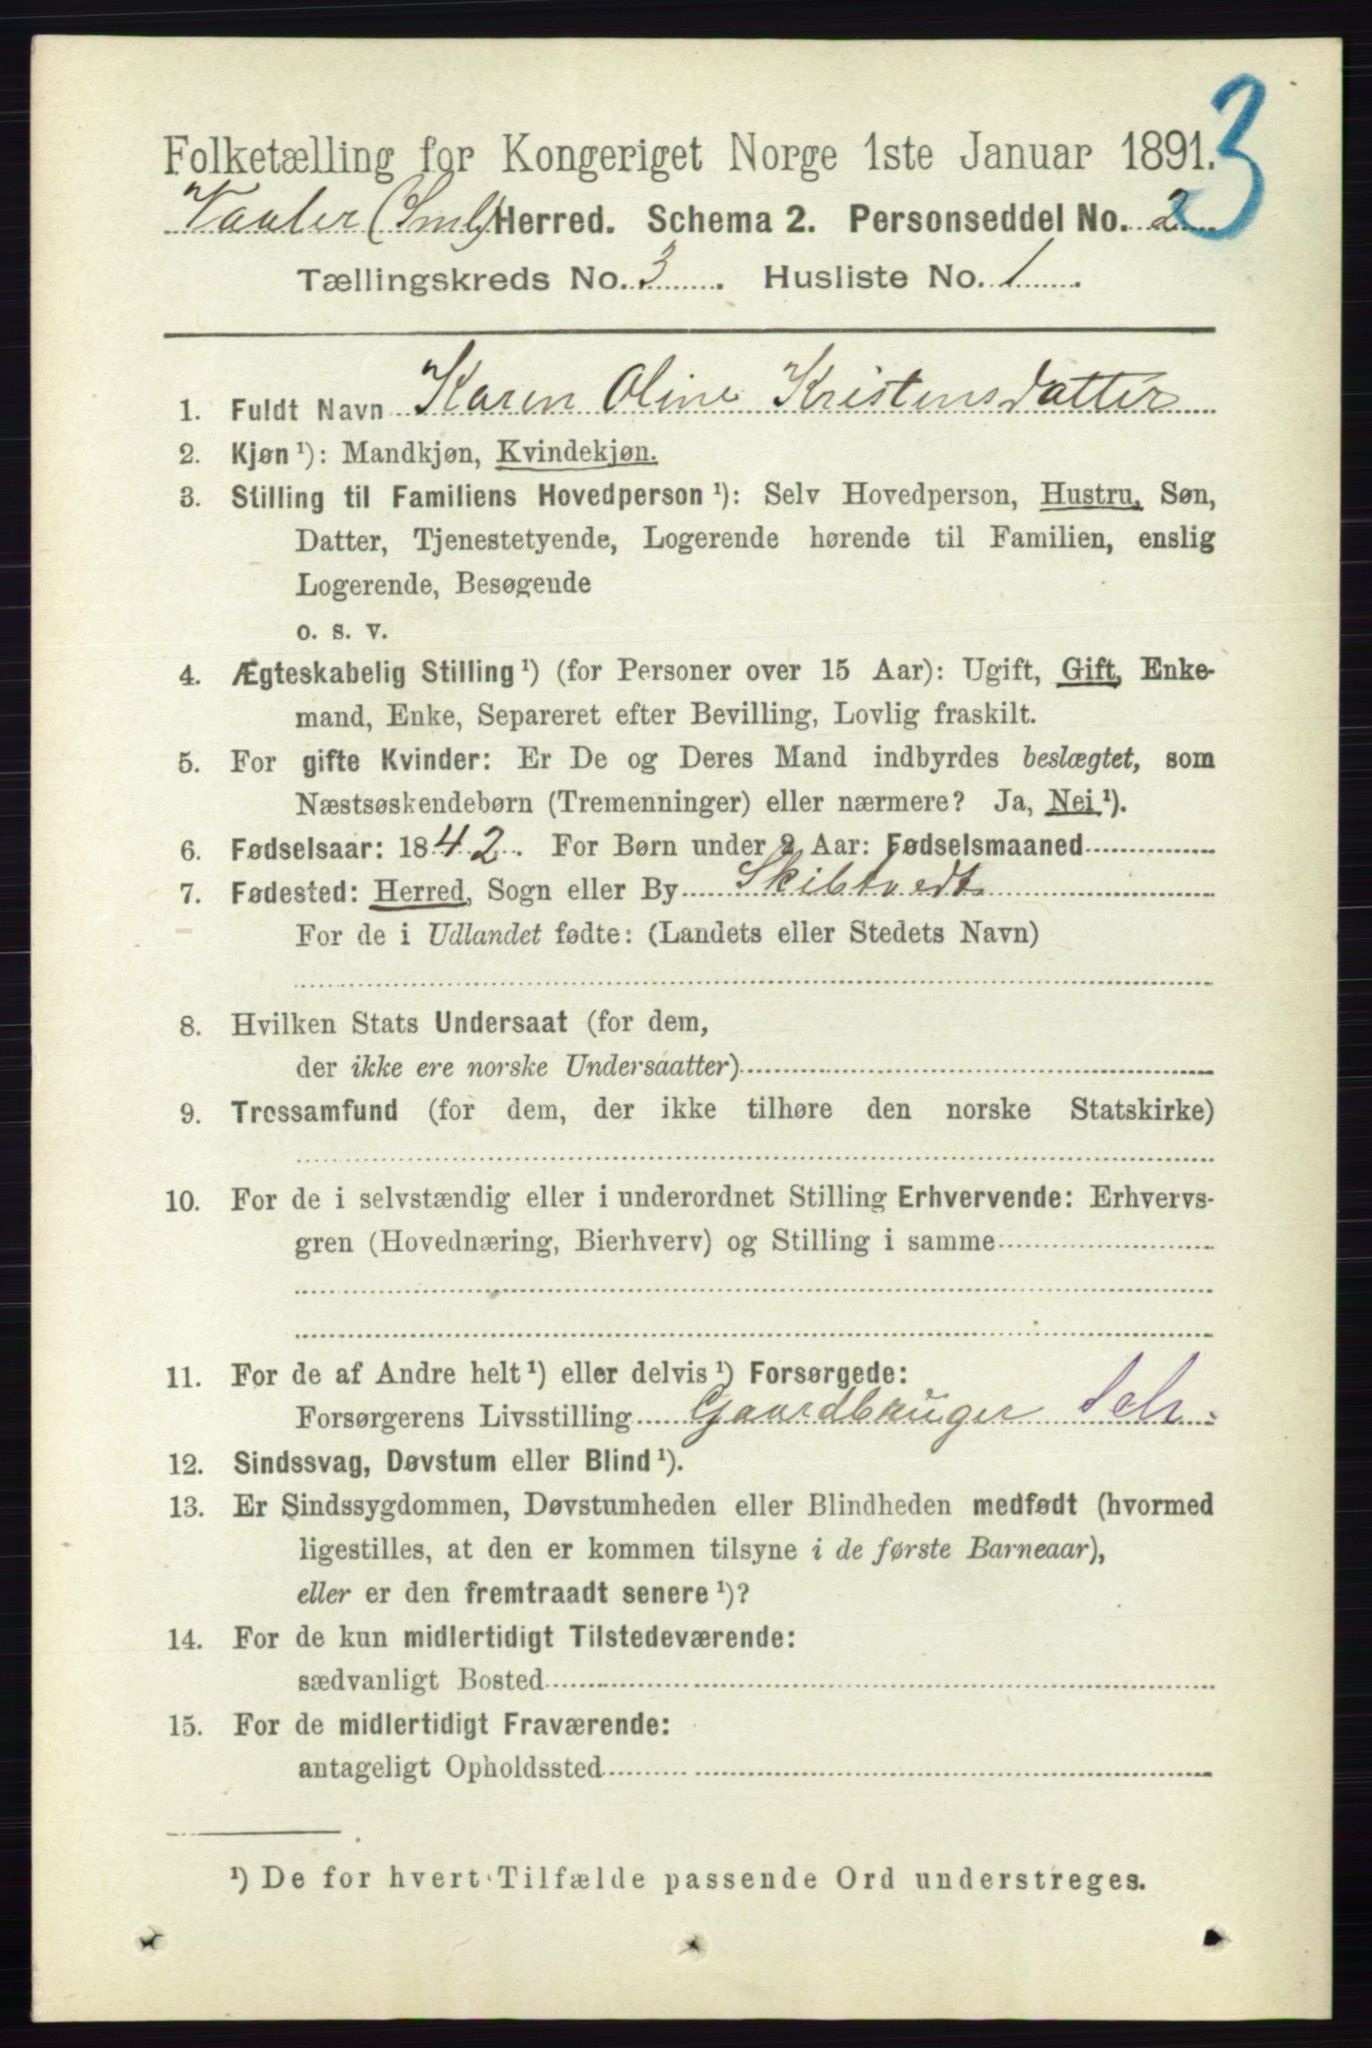 3
Folketælling for Kongeriget Norge 1ste Januar 1891.
Vaaler (Sml) Herred. Schema 2. Personseddel No. 2
Tællingskreds No. 3. Husliste No. 1.
1. Fuldt Navn Karen Oline Kristensdatter
2. Kjøn ¹): Mandkjøn, Kvindekjøn.
3. Stilling til Familiens Hovedperson ¹): Selv Hovedperson, Hustru, Søn,
Datter, Tjenestetyende, Logerende hørende til Familien, enslig
Logerende, Besøgende
o. s. v.
4. Ægteskabelig Stilling ¹) (for Personer over 15 Aar): Ugift, Gift, Enke-
mand, Enke, Separeret efter Bevilling, Lovlig fraskilt.
5. For gifte Kvinder: Er De og Deres Mand indbyrdes beslægtet, som
Næstsøskendebørn (Tremenninger) eller nærmere? Ja, Nei ¹).
6. Fødselsaar: 1842. For Børn under 2 Aar: Fødselsmaaned
7. Fødested: Herred, Sogn eller By Skibtvedt
For de i Udlandet fødte: (Landets eller Stedets Navn)
8. Hvilken Stats Undersaat (for dem,
der ikke ere norske Undersaatter)
9. Trossamfund (for dem, der ikke tilhøre den norske Statskirke)
10. For de i selvstændig eller i underordnet Stilling Erhvervende: Erhvervs-
gren (Hovednæring, Bierhverv) og Stilling i samme
11. For de af Andre helt ¹) eller delvis ¹) Forsørgede:
Forsørgerens Livsstilling Gaardbruger Selv.
12. Sindssvag, Døvstum eller Blind ¹).
13. Er Sindssygdommen, Døvstumheden eller Blindheden medfødt (hvormed
ligestilles, at den er kommen tilsyne i de første Barneaar),
eller er den fremtraadt senere ¹)?
14. For de kun midlertidigt Tilstedeværende:
sædvanligt Bosted
15. For de midlertidigt Fraværende:
antageligt Opholdssted
¹) De for hvert Tilfælde passende Ord understreges.